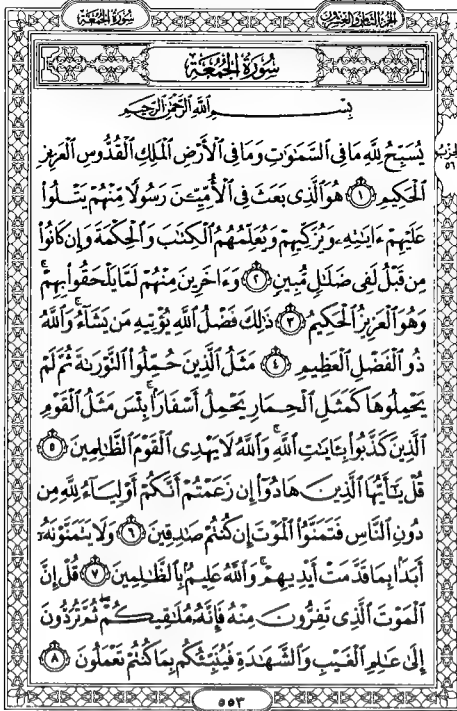 الجزء الثامن والعشرون
سورة الجمعة
سُورَةُ الْجُمُعَةِ
بِسْمِ اللَّهِ الرَّحْمَٰنِ الرَّحِيمِ
يُسَبِّحُ لِلَّهِ مَا فِي السَّمَٰوَٰتِ وَمَا فِي الْأَرْضِ الْمَلِكِ الْقُدُّوسِ الْعَزِيزِ
الْحَكِيمِ ١ هُوَ الَّذِي بَعَثَ فِي الْأُمِّيِّـۧنَ رَسُولًا مِّنْهُمْ يَتْلُوا۟
عَلَيْهِمْ ءَايَٰتِهِۦ وَيُزَكِّيهِمْ وَيُعَلِّمُهُمُ الْكِتَٰبَ وَالْحِكْمَةَ وَإِن كَانُوا۟
مِن قَبْلُ لَفِي ضَلَٰلٍ مُّبِينٍ ٢ وَءَاخَرِينَ مِنْهُمْ لَمَّا يَلْحَقُوا۟ بِهِمْ ۚ
وَهُوَ الْعَزِيزُ الْحَكِيمُ ٣ ذَٰلِكَ فَضْلُ اللَّهِ يُؤْتِيهِ مَن يَشَآءُ ۚ وَاللَّهُ
ذُو الْفَضْلِ الْعَظِيمِ ٤ مَثَلُ الَّذِينَ حُمِّلُوا۟ التَّوْرَىٰةَ ثُمَّ لَمْ
يَحْمِلُوهَا كَمَثَلِ الْحِمَارِ يَحْمِلُ أَسْفَارًۢا ۚ بِئْسَ مَثَلُ الْقَوْمِ
الَّذِينَ كَذَّبُوا۟ بِـَٔايَٰتِ اللَّهِ ۚ وَاللَّهُ لَا يَهْدِي الْقَوْمَ الظَّٰلِمِينَ ٥
قُلْ يَٰٓأَيُّهَا الَّذِينَ هَادُوٓا۟ إِن زَعَمْتُمْ أَنَّكُمْ أَوْلِيَآءُ لِلَّهِ مِن
دُونِ النَّاسِ فَتَمَنَّوُا۟ الْمَوْتَ إِن كُنتُمْ صَٰدِقِينَ ٦ وَلَا يَتَمَنَّوْنَهُۥٓ
أَبَدًۢا بِمَا قَدَّمَتْ أَيْدِيهِمْ ۚ وَاللَّهُ عَلِيمٌۢ بِالظَّٰلِمِينَ ٧ قُلْ إِنَّ
الْمَوْتَ الَّذِي تَفِرُّونَ مِنْهُ فَإِنَّهُۥ مُلَٰقِيكُمْ ۖ ثُمَّ تُرَدُّونَ
إِلَىٰ عَٰلِمِ الْغَيْبِ وَالشَّهَٰدَةِ فَيُنَبِّئُكُم بِمَا كُنتُمْ تَعْمَلُونَ ٨
الحزب
٥٦
٥٥٣